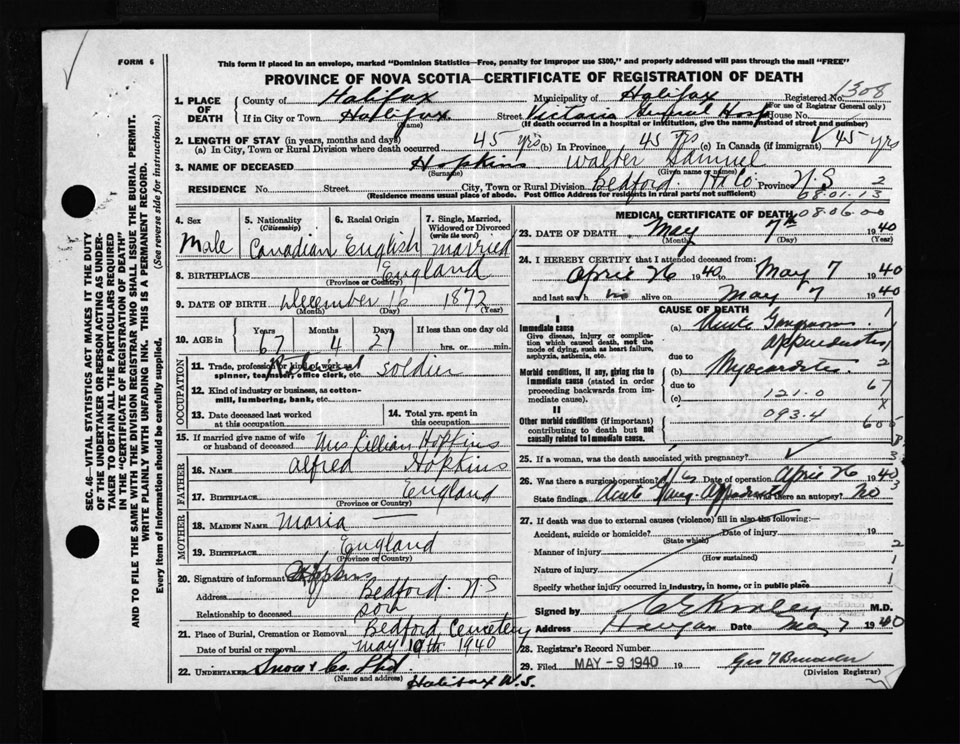 FORM 6
This form if placed in an envelope, marked "Dominion Statistics—Free, penalty for improper use $300," and properly addressed will pass through the mail "FREE"
PROVINCE OF NOVA SCOTIA—CERTIFICATE OF REGISTRATION OF DEATH
1. PLACE OF DEATH County of Halifax Municipality of Halifax Registered No. 1308
(For use of Registrar General only)
If in City or Town Halifax (Name) Street Victoria Hosp House No.
(If death occurred in a hospital or institution, give the name instead of street and number)
2. LENGTH OF STAY (in years, months and days)
(a) In City, Town or Rural Division where death occurred 45 yrs (b) In Province 45 yrs (c) In Canada (if immigrant) 45 yrs
3. NAME OF DECEASED Hopkins (Surname) Walter Samuel (Given name or names)
RESIDENCE No. Street City, Town or Rural Division Bedford Hx Co. Province N.S 2
(Residence means usual place of abode. Post Office Address for residents in rural parts not sufficient) 08.01.13
4. Sex Male
5. Nationality (Citizenship) Canadian
6. Racial Origin English
7. Single, Married, Widowed or Divorced (write the word) married
8. BIRTHPLACE England
(Province or Country)
9. DATE OF BIRTH December 16 1872
(Month) (Day) (Year)
10. AGE in Years 67 Months 4 Days 21 If less than one day old hrs. or min.
OCCUPATION
11. Trade, profession or kind of work as spinner, teamster, office clerk, etc. soldier
12. Kind of industry or business, as cotton-mill, lumbering, bank, etc.
13. Date deceased last worked at this occupation
14. Total yrs. spent in this occupation
15. If married give name of wife or husband of deceased Mrs Lillian Hopkins
FATHER
16. NAME Alfred Hopkins
17. BIRTHPLACE England
(Province or Country)
MOTHER
18. MAIDEN NAME Maria —
19. BIRTHPLACE England
(Province or Country)
20. Signature of informant Hopkins
Address Bedford N S
Relationship to deceased son
21. Place of Burial, Cremation or Removal Bedford Cemetery
Date of burial or removal May 1940
22. UNDERTAKER Snow & Co. Ltd.
(Name and address) Halifax N.S.
MEDICAL CERTIFICATE OF DEATH 08.06.00
23. DATE OF DEATH May 7th 1940
(Month) (Day) (Year)
24. I HEREBY CERTIFY that I attended deceased from:
April 26 1940 to May 7 1940
and last saw h im alive on May 7 1940
CAUSE OF DEATH
I
Immediate cause
Give disease, injury or complication which caused death, not the mode of dying, such as heart failure, asphyxia, asthenia, etc.
(a) Acute Gangrenous Appendicitis
due to
Morbid conditions, if any, giving rise to immediate cause (stated in order proceeding backwards from immediate cause).
(b) Myocarditis
due to
(c) 121.0
II
Other morbid conditions (if important) contributing to death but not causally related to immediate cause.
093.4
25. If a woman, was the death associated with pregnancy?
26. Was there a surgical operation? Yes Date of operation April 26 1940
State findings Acute Gang. Appendicitis Was there an autopsy? No
27. If death was due to external causes (violence) fill in also the following:—
Accident, suicide or homicide? Date of injury 19
(State which)
Manner of injury
(How sustained)
Nature of injury
Specify whether injury occurred in industry, in home, or in public place
Signed by M.D.
Address Halifax Date May 7 1940
28. Registrar's Record Number
29. Filed MAY - 9 1940 19
(Division Registrar)
SEC. 46—VITAL STATISTICS ACT MAKES IT THE DUTY OF THE UNDERTAKER OR PERSON ACTING AS UNDERTAKER TO OBTAIN ALL THE PARTICULARS REQUIRED IN THE "CERTIFICATE OF REGISTRATION OF DEATH" AND TO FILE THE SAME WITH THE DIVISION REGISTRAR WHO SHALL ISSUE THE BURIAL PERMIT.
WRITE PLAINLY WITH UNFADING INK. THIS IS A PERMANENT RECORD.
Every item of information should be carefully supplied. (See reverse side for instructions.)